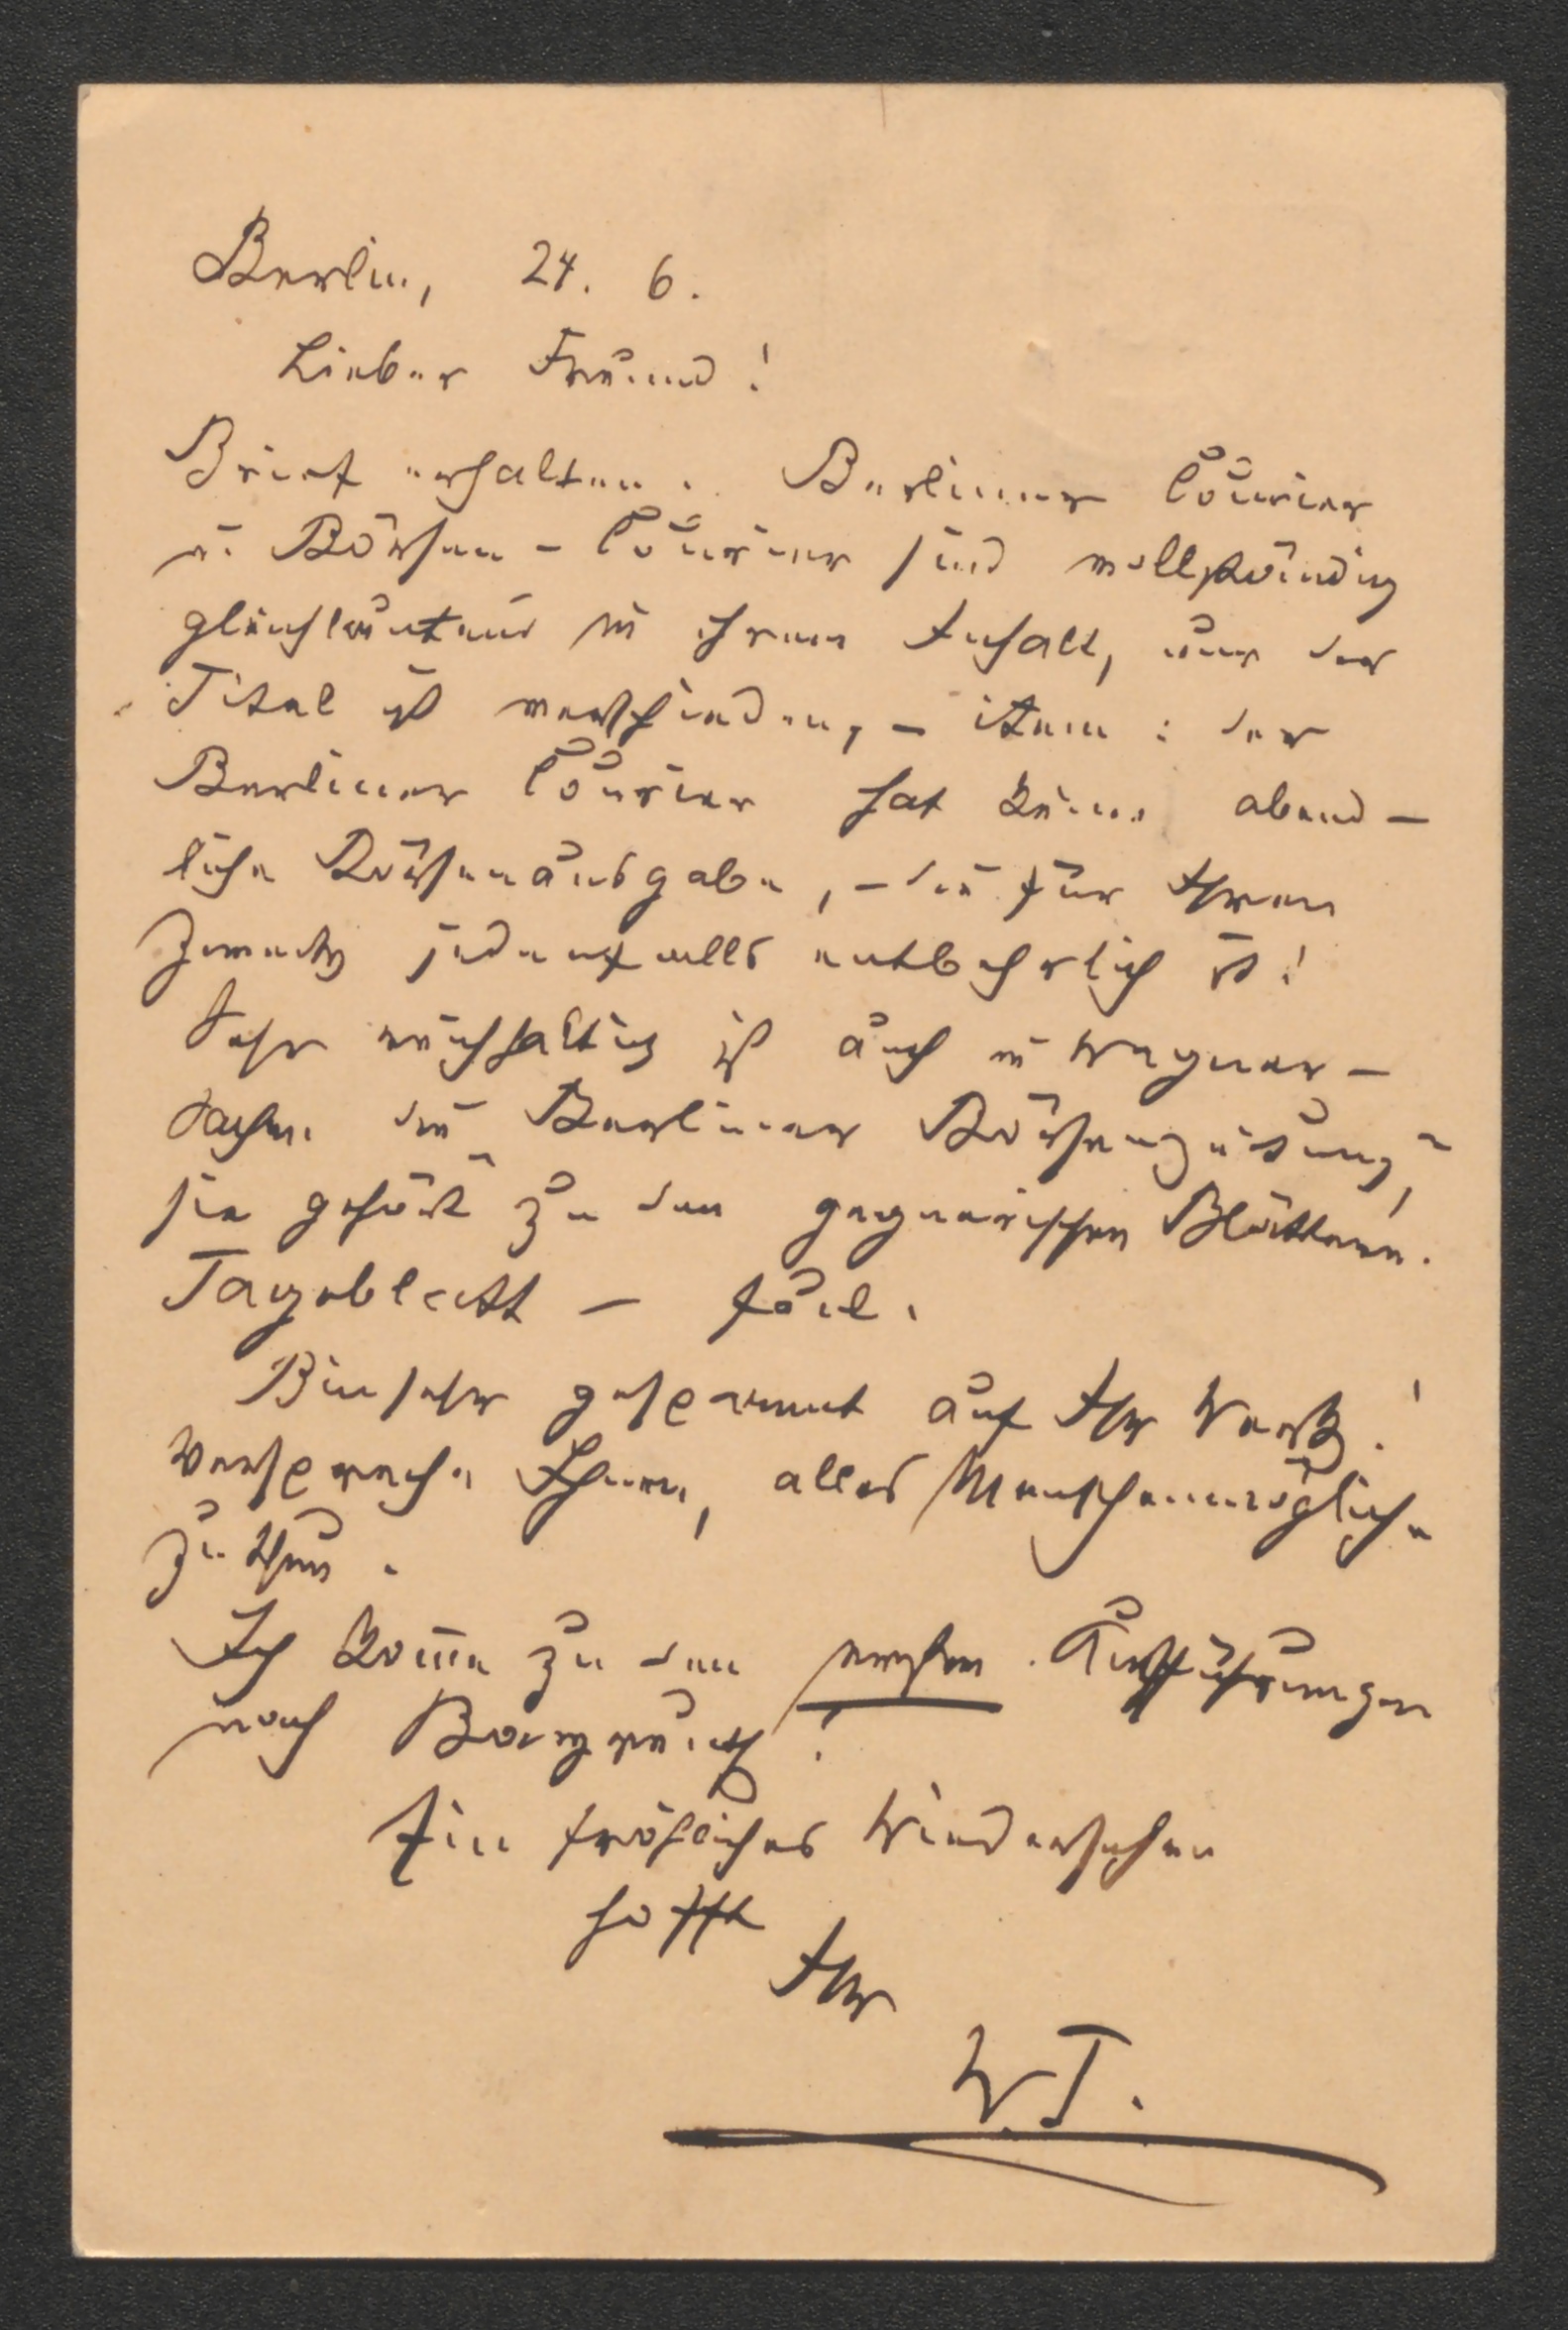 Berlin, 24. 6.
Lieber Freund!
Brief erhalten. Berliner Courier
u. Börsen-Courier sind vollständig
gleichlautend in ihrem Inhalt, nur der
Titel ist verschieden, – item: der
Berliner Courier hat keine abend-
liche Börsenausgabe, – die für Ihren
Zweck jedenfalls entbehrlich ist!
Sehr reichhaltig ist auch in Wagner-
sachen die Berliner Börsenzeitung,
sie gehört zu den gegnerischen Blättern.
Tageblatt – faul.
Bin sehr gespannt auf Ihr Werk!
Verspreche Ihnen, alles Menschenmögliche
zu thun.
Ich kom̄e zu den ersten Aufführungen
nach Bayreuth!
Ein fröhliches Wiedersehen
hofft
Ihr
W. T.